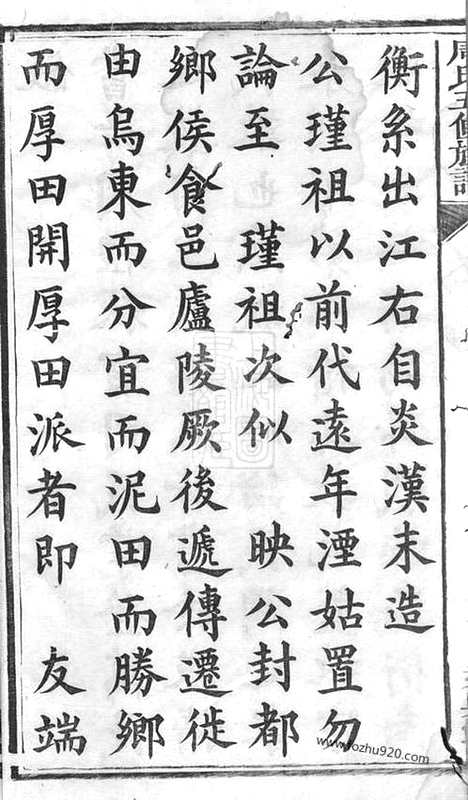 周氏五修族譜
衡系出江右自炎漢末造
公瑾祖以前代遠年湮姑置勿
論至　瑾祖次似　映公封都
鄉侯食邑廬陵厥後遞傳遷徙
由烏東而分宜而泥田而勝鄉
而厚田開厚田派者即　友端
www.fozhu920.com